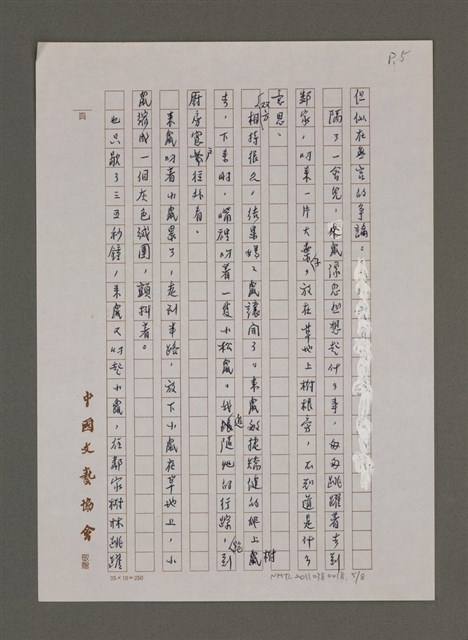 P.5
但似在無言的爭論。
隔了一會兒,來鼠深忽想起什麼事,匆匆跳躍著去到
鄰家,叼來一片大葉子,放在草地上樹根旁,不知道是什麼
意思。
雙方相持很久,結果媽媽鼠讓開了。來鼠敏捷矯健的爬上
去,下來時,嘴裡叼著一隻小松鼠。我跟隨她的行蹤,到
廚房窗戶往外看。
來鼠叼著小鼠累了,走到半路,放下小鼠在草地上,小
鼠縮成一個灰色絨團,顫抖著。
也只歇了三五秒鐘,來鼠又叼起小鼠,往鄰家樹林跳躍
中國文藝協會
25×10=250
NMTL20110380018, 5/8